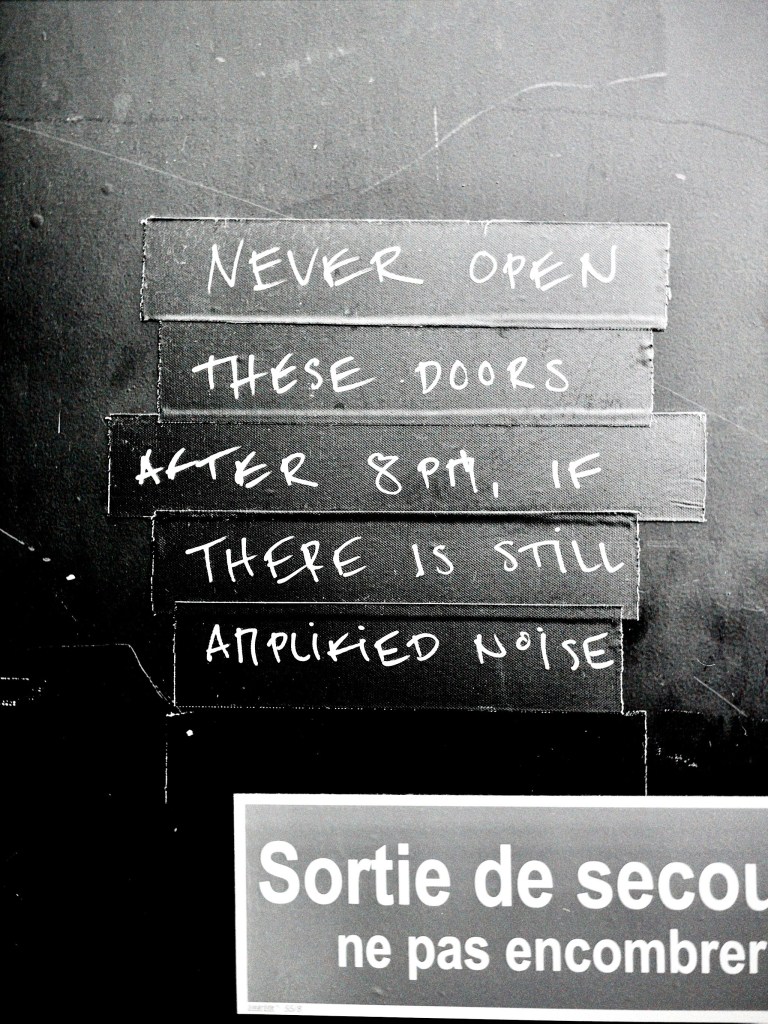 NEVER OPEN
THESE DOORS
AFTER 8PM, IF
THERE IS STILL
AMPLIFIED NOISE
Sortie de secou
ne pas encombrer